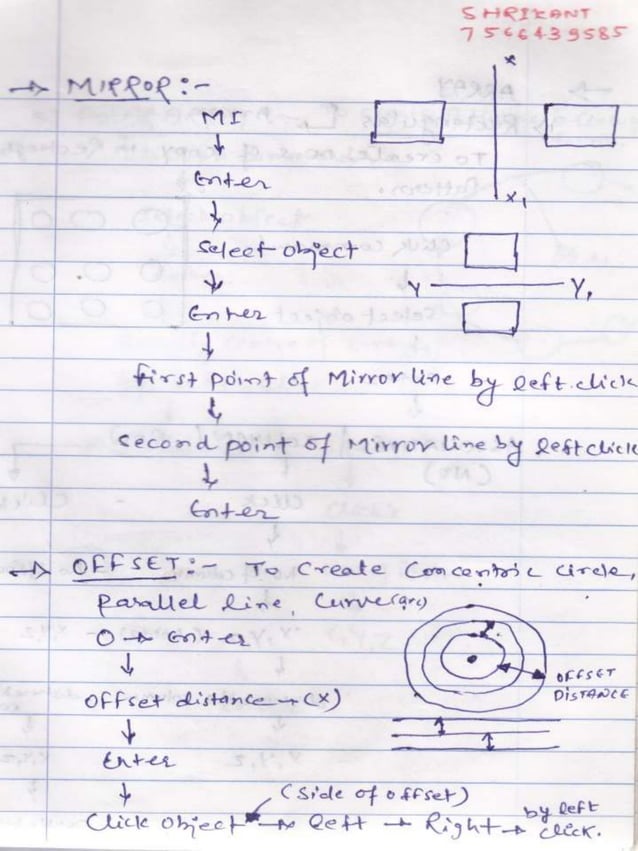 SHRIKANT
7566439585
→ MIRROR :-
MI
↓
Enter
↓
Select object
↓
Enter
↓
first point of Mirror line by left click
↓
Second point of Mirror line by left click
↓
Enter
X
X1
Y Y1
→ OFFSET :- To Create Concentric circle,
Parallel line, Curve (arc)
O → Enter
↓
Offset distance → (X)
↓
Enter
↓
(Side of offset)
Click Object → left → Right → by left click.
OFFSET
DISTANCE